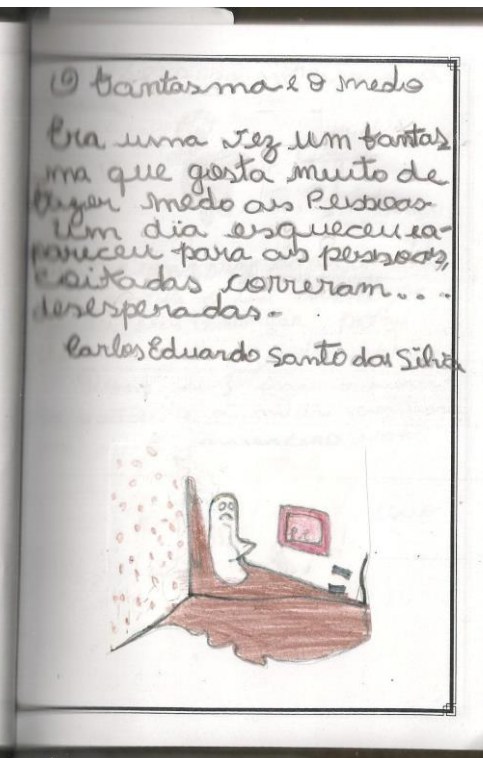 O fantasma e o medo
Era uma vez um fantas
ma que gosta muito de
fazer medo as Pessoas.
Um dia esqueceu e a-
pareceu para as pessoas,
Coitadas correram...
desesperadas.
Carlos Eduardo Santo das Silva